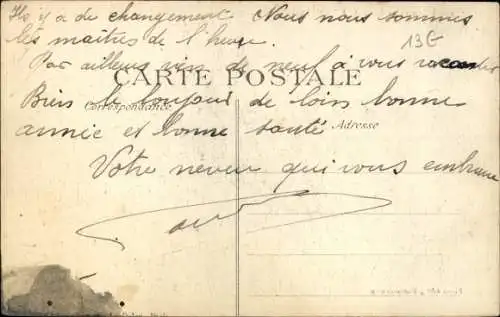 Ils y a de changement Nous nous sommes
les maîtres de l'heure.
13G
Par ailleurs rien de neuf à vous raconter
CARTE POSTALE
Bien le bonjour de loin bonne
Correspondance
année et bonne santé
Adresse
Votre neveu qui vous embrasse